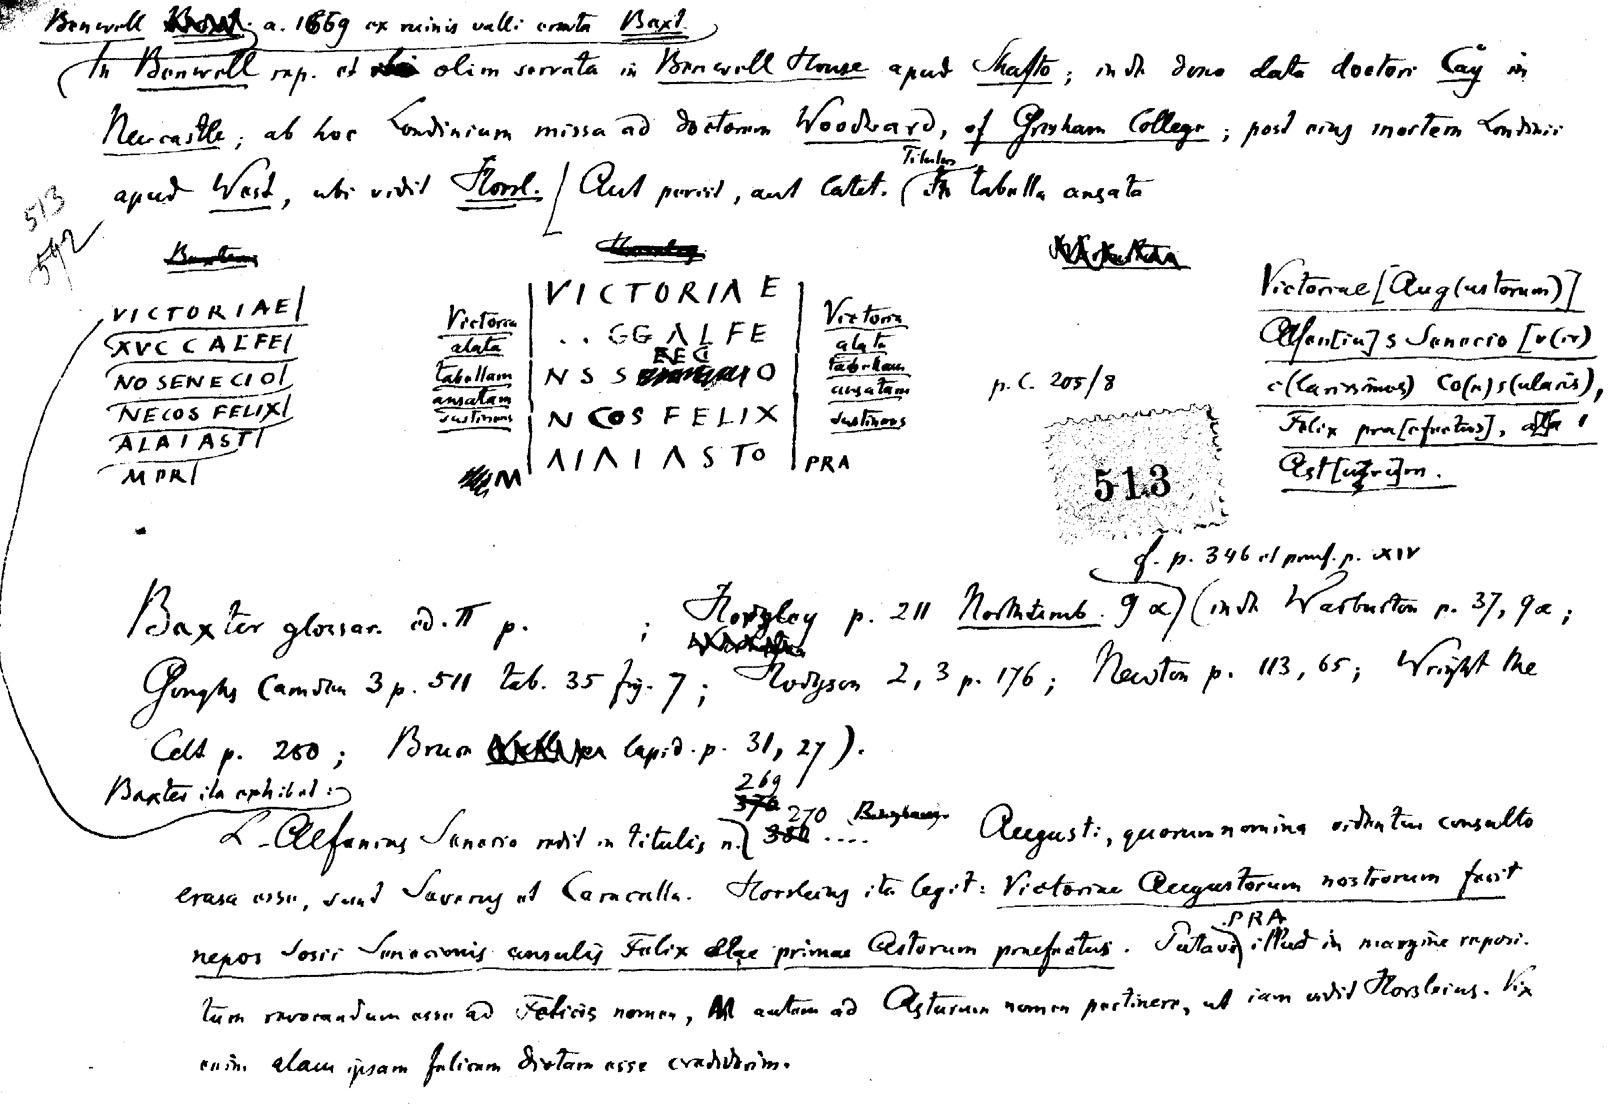 Benwell a. 1669 ex ruinis valli eruta Baxt.
In Benwell rep. et olim servata in Benwell House apud Shafto; inde dono data doctori Caÿ in
Newcastle; ab hoc Londinium missa ad doctorem Woodward, of Gresham College; post eius mortem Londinii
apud West, ubi vidit Horsl. Aut periit, aut latet. (Titulus In tabella ansata
513
592
VICTORIAE
XVC C ALFE
NO SENECIO
NECOS FELIX
ALA I AST
M PR
Victoria
alata
tabellam
ansatam
sustinens
VICTORIAE
. . GG ALFE
N S S O
N COS FELIX
ALA I ASTO
M
PRA
Victoria
alata
tabellam
ansatam
sustinens
p. C. 205/8
513
Victoriae [Aug(ustorum)]
Alfen[iu]s Senecio [v(ir)
c(larissimus) co(n)s(ularis),
Felix pra[efectus], alae I
Ast[uru]m.
cf. p. 346 et praef. p. XIV
Baxter glossar. ed. II p. ; Horsley p. 211 Northumb. 9 a) (inde Warburton p. 37, 9a;
Goughs Camden 3 p. 511 tab. 35 fig. 7; Hodgson 2, 3 p. 176; Newton p. 113, 65; Wright the
Celt p. 260; Bruce lapid. p. 31, 27).
Baxter ita exhibet:
269
270
L. Alfenius Senecio redit in titulis n. .... Augusti, quorum nomina videntur consulto
erasa esse, sunt Severus et Caracalla. Horsleius ita legit: Victoriae Augustorum nostrorum fecit
nepos Sosii Senecionis consulis Felix alae primae Astorum praefectus. Putavi PRA illud in margine reposi-
tum revocandum esse ad Felicis nomen, M autem ad Asturum nomen pertinere, ut iam vidit Horsleius. Vix
enim alam ipsam felicem dictam esse crediderim.